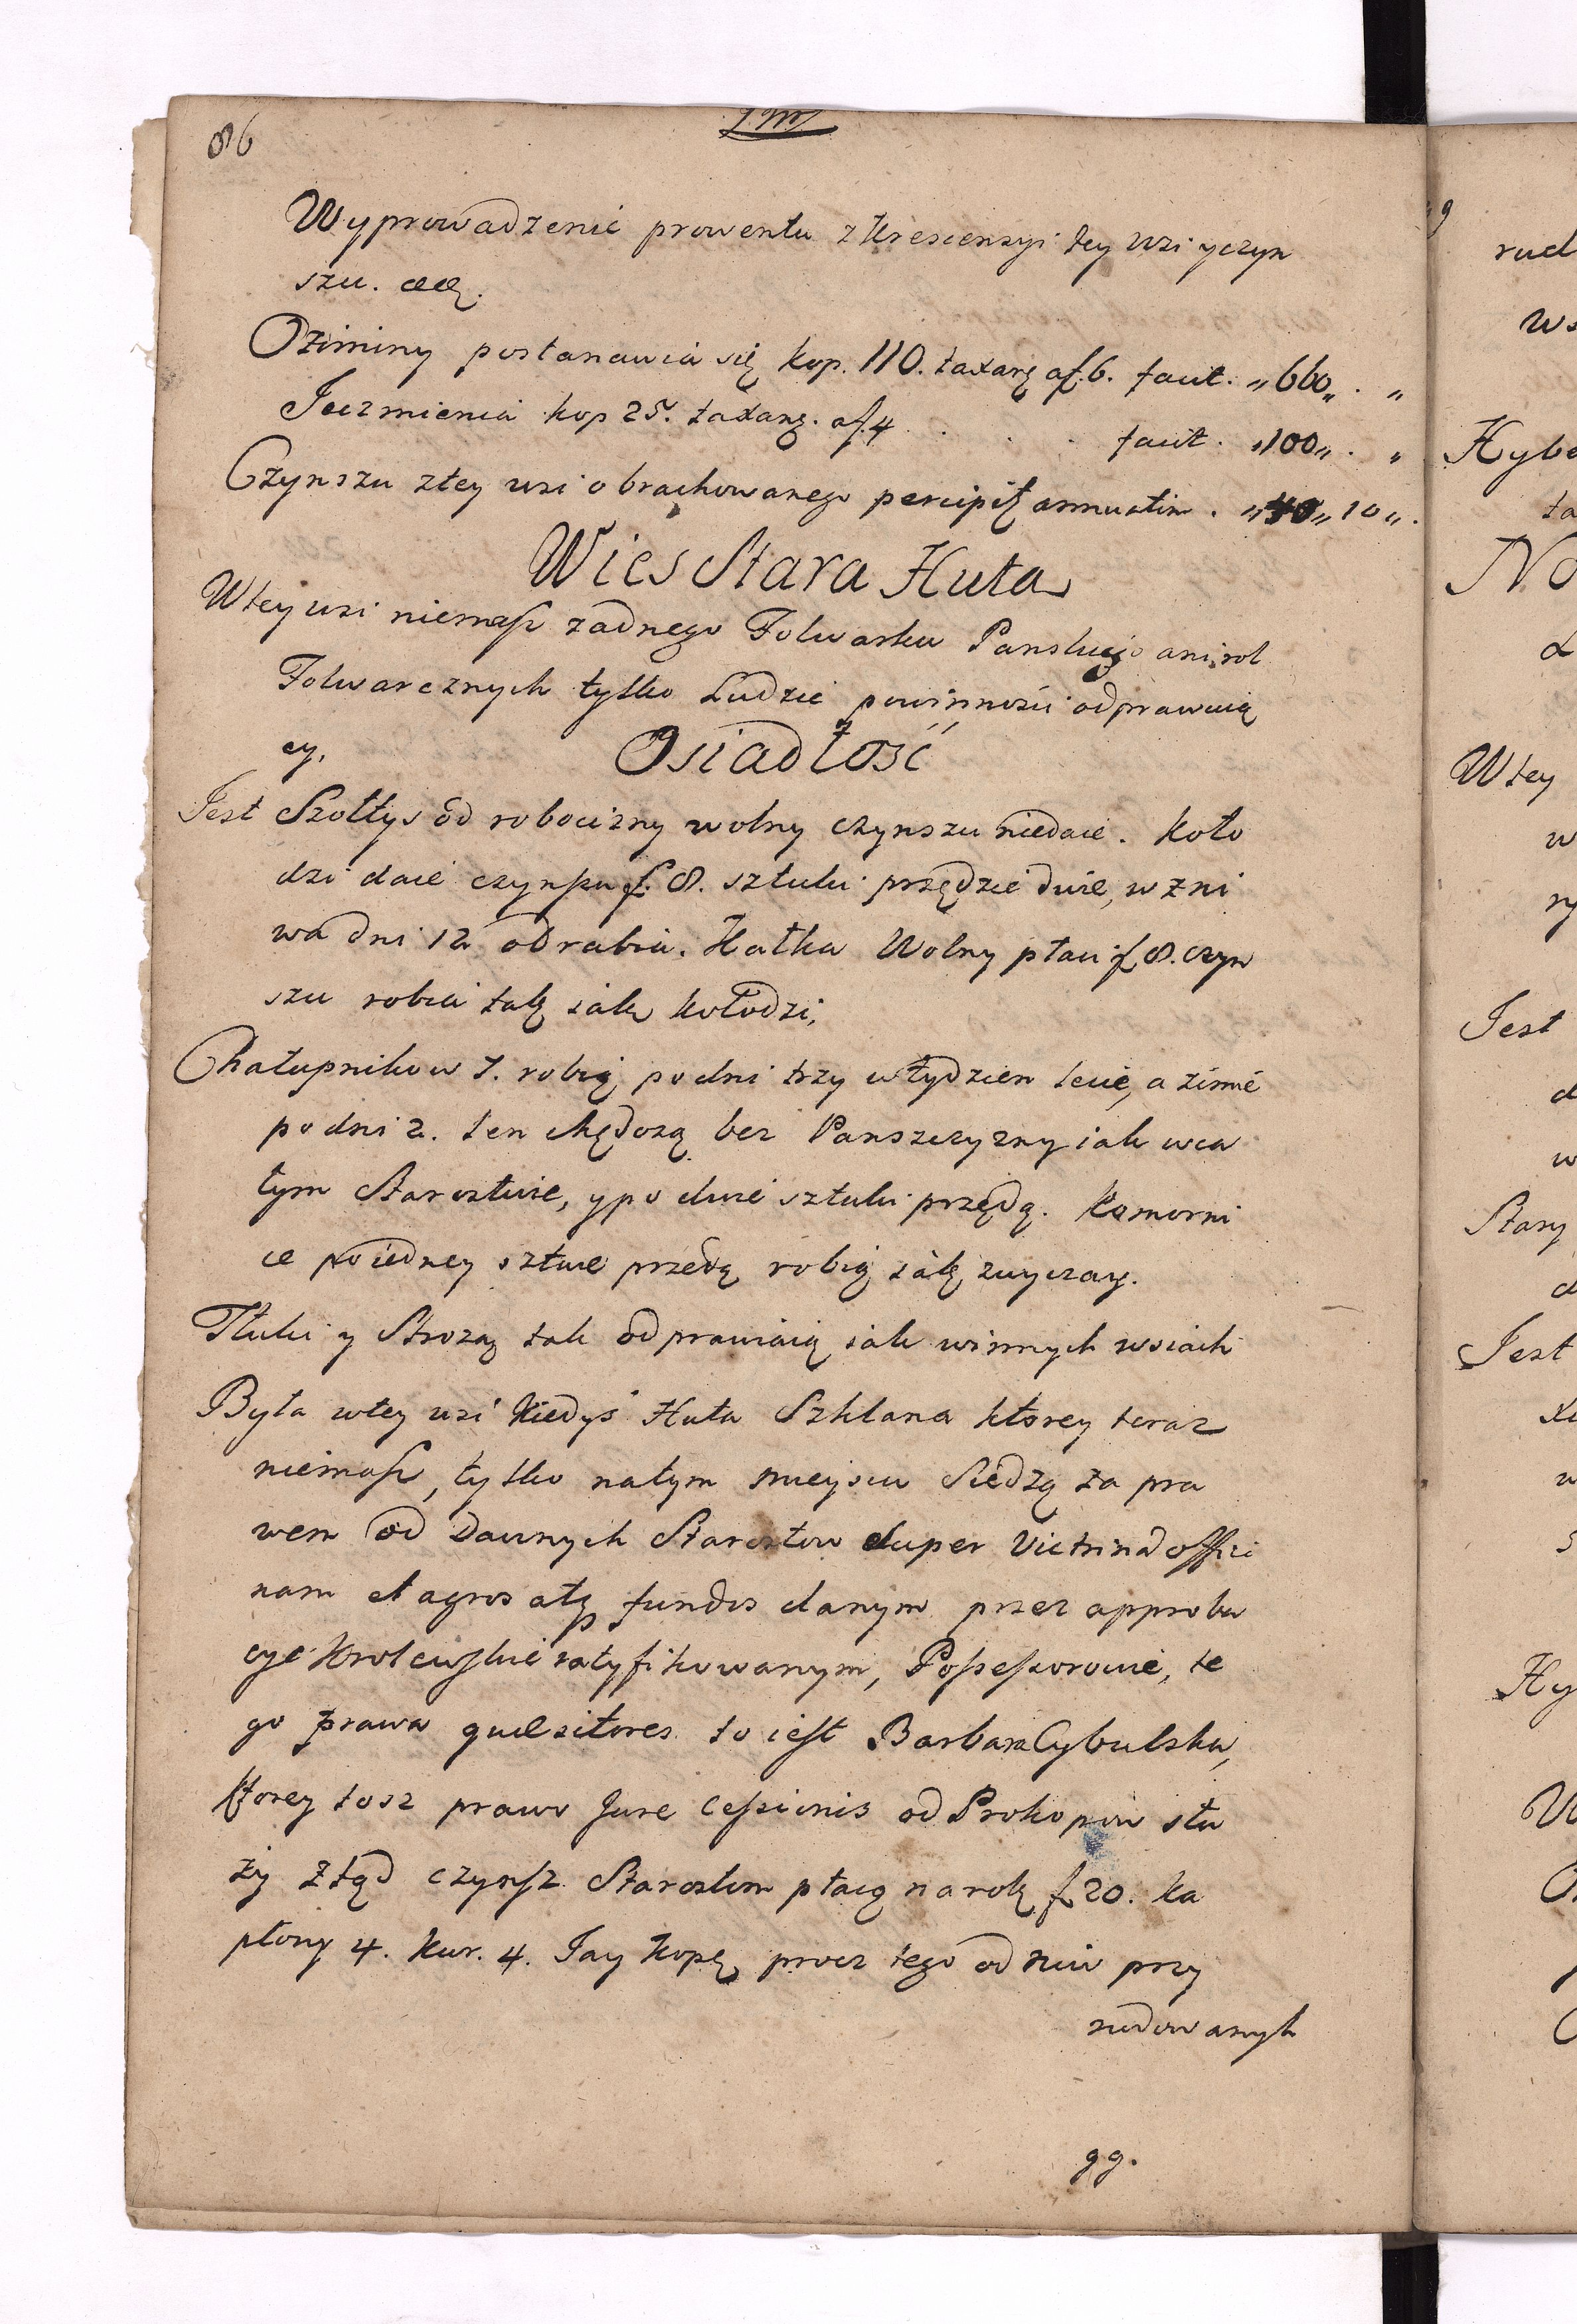 86
Wyprowadzenie prowentu z Krescensyi tey wsi y czyn
szu.
Oziminy postanawia się kop. 110. taxanę a f. 6. facit. „ 660 „ . „
Jęczmienia kop 25. taxanę. a f. 4 . . . facit. „ 100 „ . „
Czynszu ztey wsi obrachowanego percipit annuatim . „ 40 „ 10 „ .
Wies Stara Huta
Wtey wsi niemasz zadnego Folwarku Panskiego ani rol
Folwarcznych tylko Ludzie powinnosci odprawuią
cy.
Osiadłość
Jest Szołtys od robocizny wolny czynszu niedaie. Koło
dzi daie czynszu f. 8. sztuki przędzie dwie, w zni
wa dni 12 odrabia. Hatka Wolny płaci f 8. czyn
szu robi tak iak kołodzi,
Chałupnikow 7. robią po dni trzy w tydzien lecie, a zimie
po dni 2. len chędozą bez Panszczyzny iak wca
łym Starostwie, y po dwie sztuki przędą. Komorni
ce po iedney sztuce przedą robią iak zwyczay.
Tłuki y Strozą tak odprawiaią iak winnych wsiach
Była wtey wsi kiedys Huta Szklana ktorey teraz
niemasz, tylko natym mieyscu Siedzą za pra
wem od Dawnych Starostow super Victrinad offici
nam et agros atq fundos danym przez approba
cye Krolewskie ratyfikowanym, Possessorowie, te
go prawa quesitores to iest Barbara Cybulska,
ktorey tosz prawo Jure Cessionis od Prokopow słu
zy ztąd czynsz Starostom płacą na rok f 20. ka
płony 4. kur. 4. Jay kopę procz tego od niw przy
rudowanych
gg.
rud
Hybe
No
Wtey
w
Jest
d
w
Stary
d
Jest
w
Hy